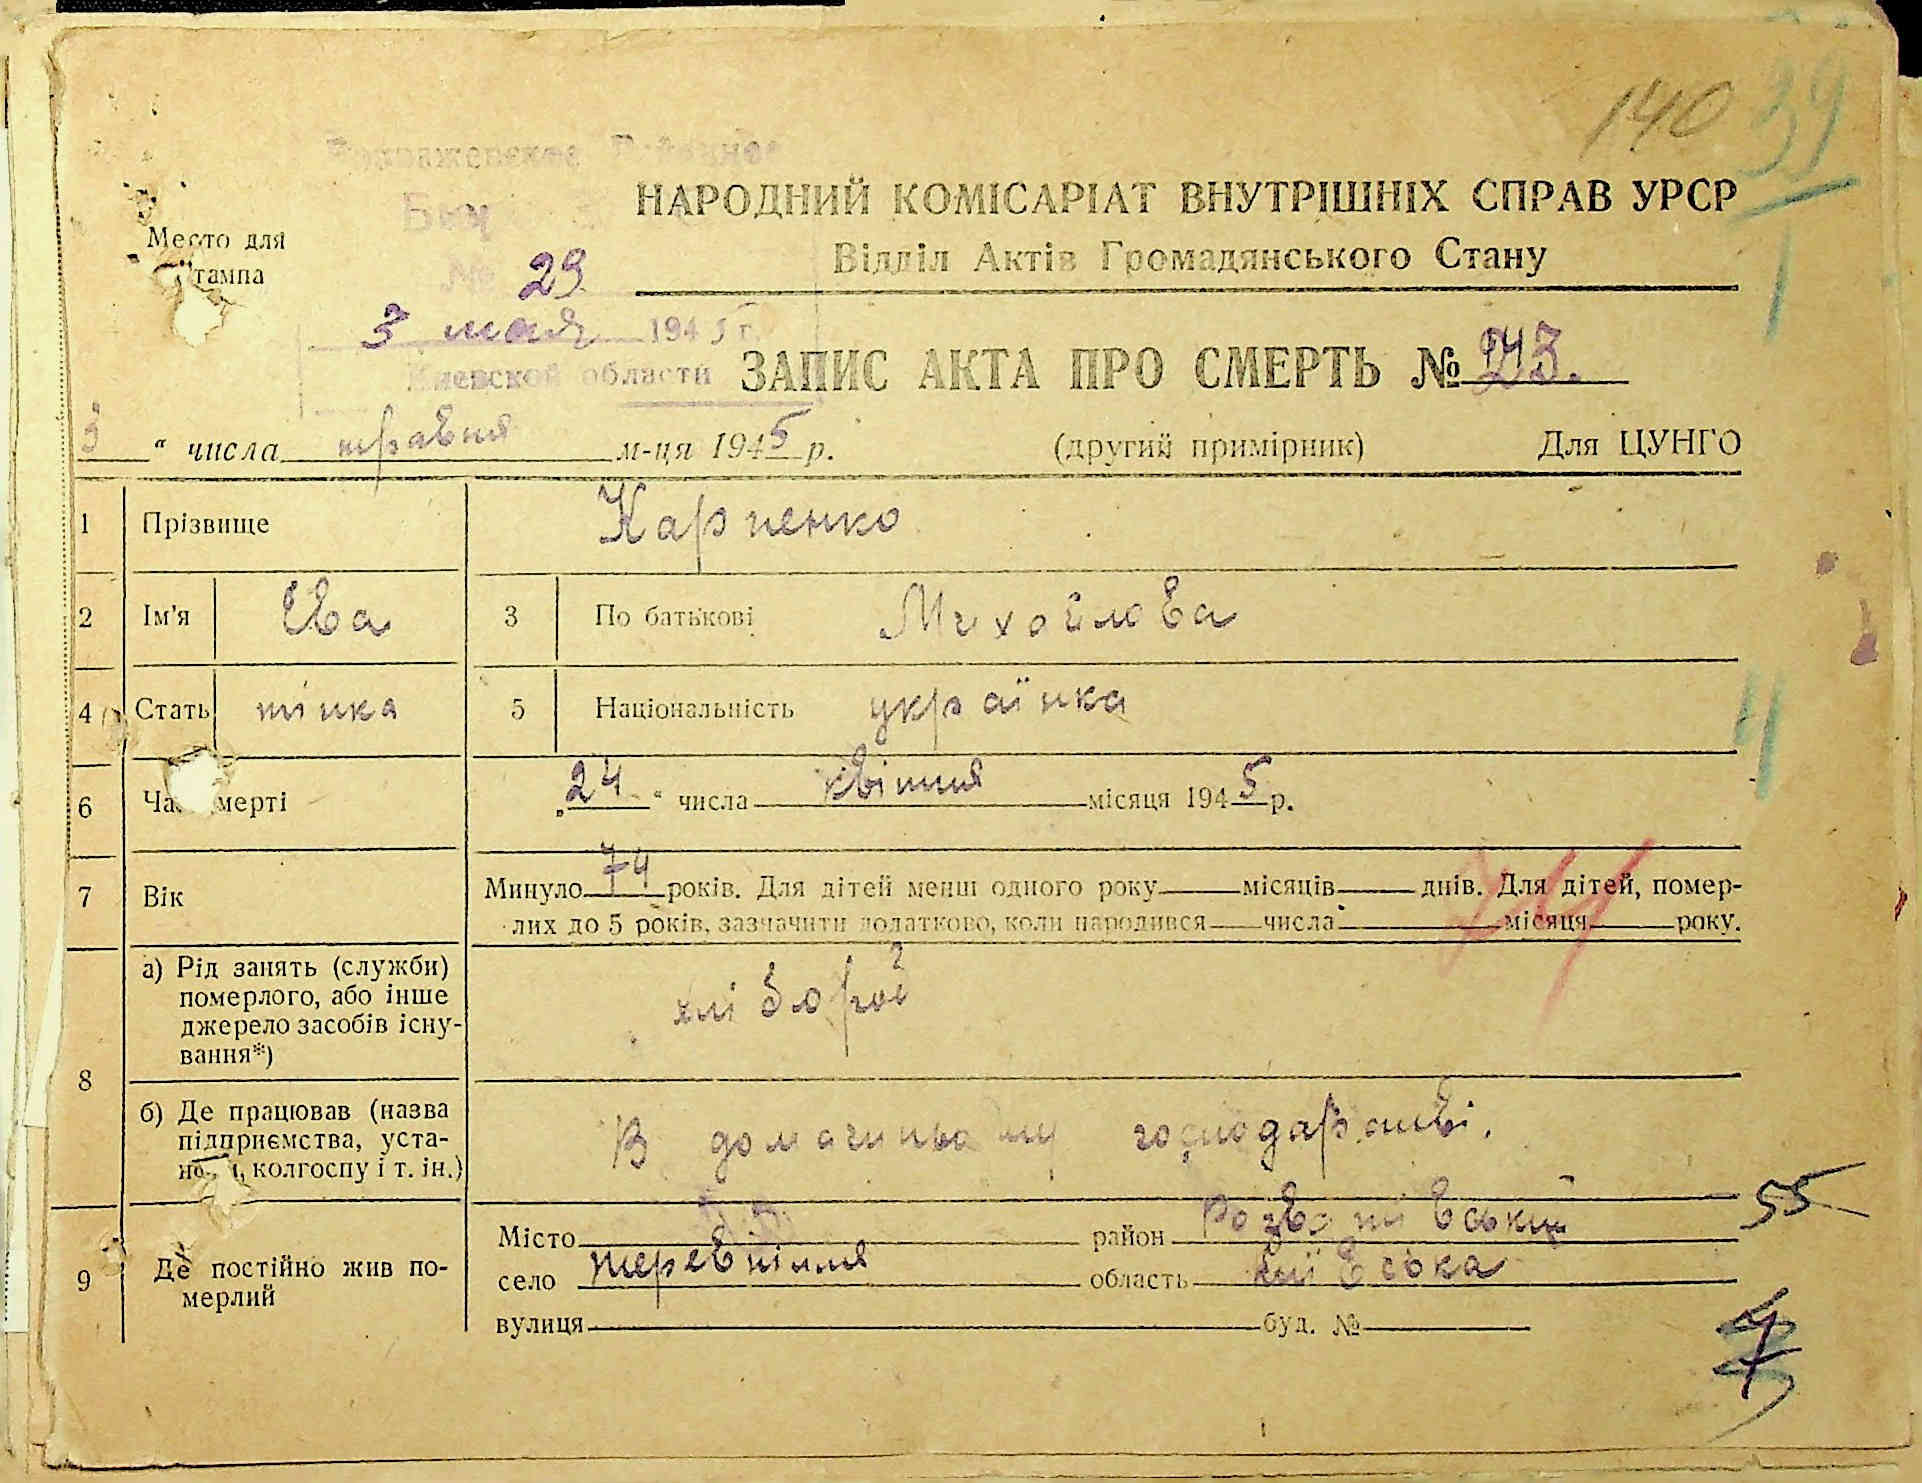 140 39
1
Бюро
НАРОДНИЙ КОМІСАРІАТ ВНУТРІШНІХ СПРАВ УРСР
Место для
штампа
№ 29
Відділ Актів Громадянського Стану
3 мая 1945 г.
Киевской области
ЗАПИС АКТА ПРО СМЕРТЬ №
3 " числа травня м-ця 1945 р. (другий примірник) Для ЦУНГО
1 Прізвище Карпенко
2 Ім'я Ева 3 По батькові Михайлова
4 Стать жінка 5 Національність українка
4
6 Час смерті „24" числа квітня місяця 1945 р.
7 Вік Минуло 74 років. Для дітей менш одного року місяців днів. Для дітей, помер-
лих до 5 років, зазначити додатково, коли народився числа місяця року.
8 а) Рід занять (служби)
померлого, або інше
джерело засобів існу-
вання*)
хлібороб
б) Де працював (назва
підприємства, уста-
нови, колгоспу і т. ін.)
В домашньому господарстві.
55
9 Де постійно жив по-
мерлий
Місто район Розважівський
село область Київська
вулиця буд. №